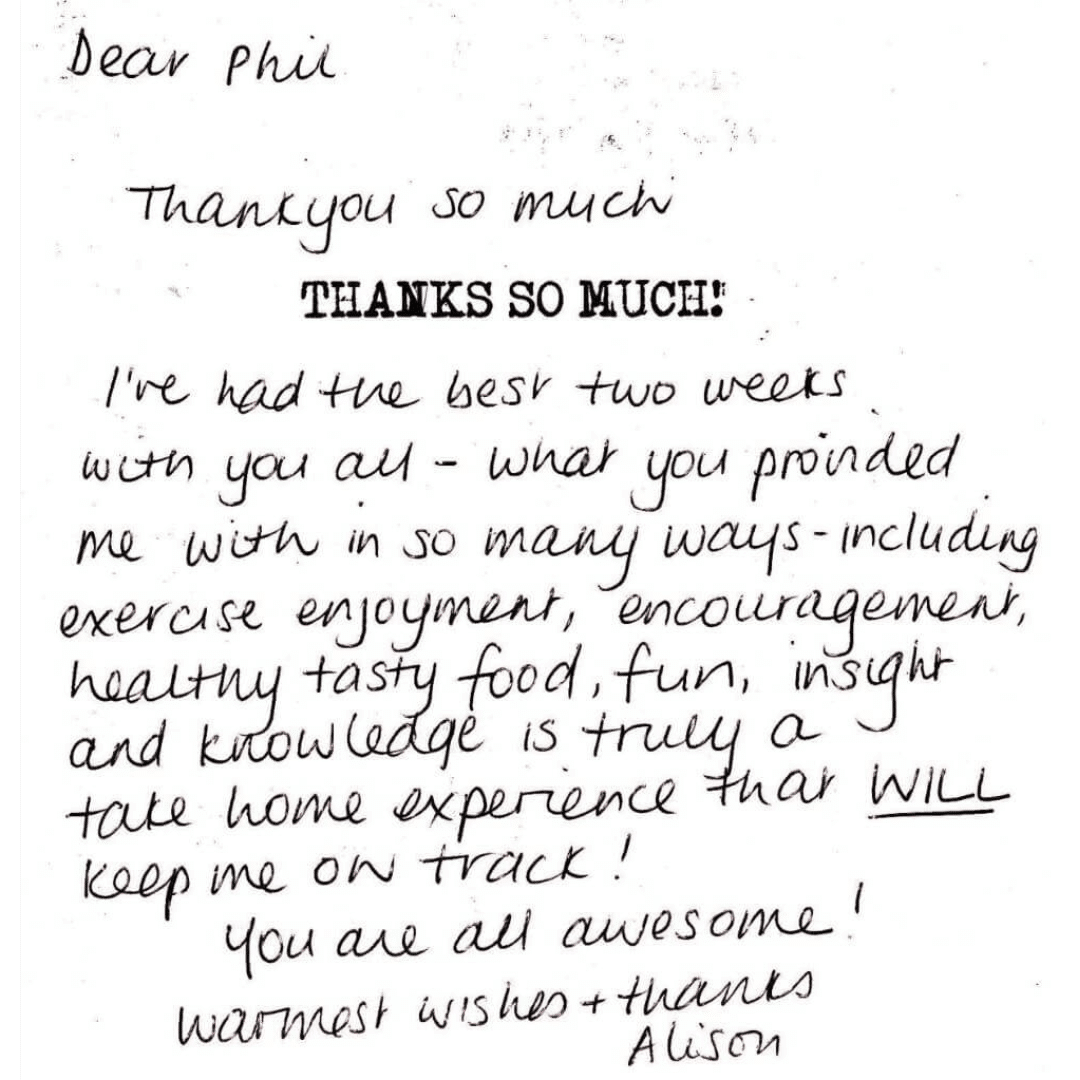 Dear Phil
Thankyou so much
THANKS SO MUCH!
I've had the best two weeks
with you all - what you provided
me with in so many ways - including
exercise enjoyment, encouragement,
healthy tasty food, fun, insight
and knowledge is truly a
take home experience that WILL
keep me on track!
You are all awesome!
Warmest wishes + thanks
Alison